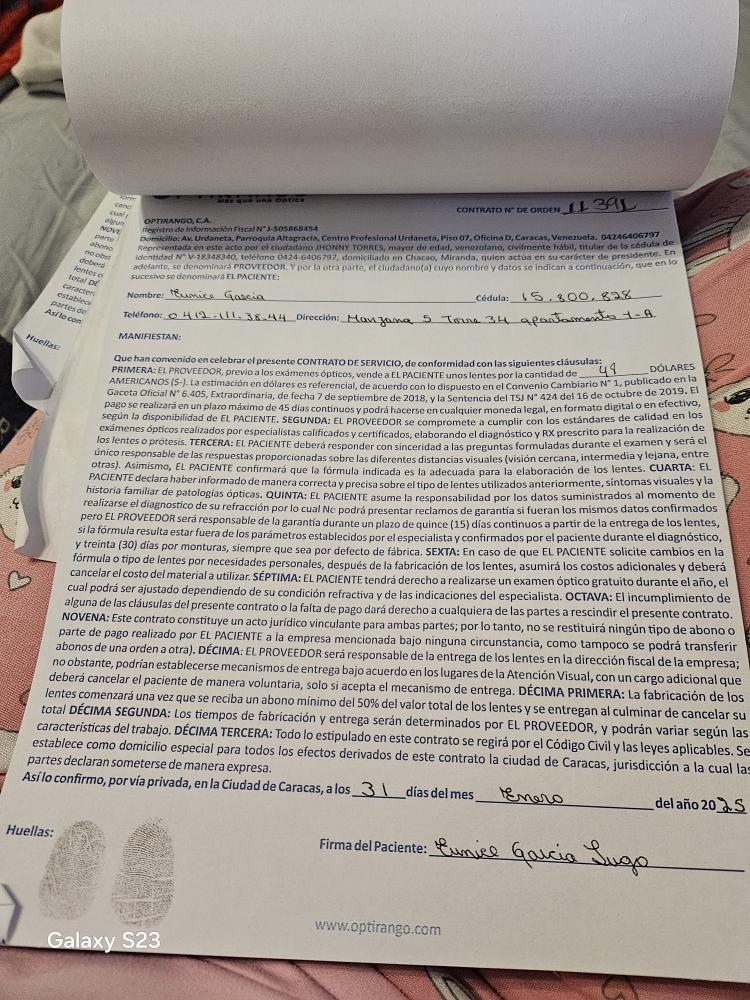 Más que una Óptica
CONTRATO N° DE ORDEN 11391
OPTIRANGO, C.A.
Registro de Información Fiscal N° J-505868454
Domicilio: Av. Urdaneta, Parroquia Altagracia, Centro Profesional Urdaneta, Piso 07, Oficina D, Caracas, Venezuela. 04246406797
Representada en este acto por el ciudadano JHONNY TORRES, mayor de edad, venezolano, civilmente hábil, titular de la cédula de
identidad N° V-18348340, teléfono 0424-6406797, domiciliado en Chacao, Miranda, quien actúa en su carácter de presidente. En
adelante, se denominará PROVEEDOR. Y por la otra parte, el ciudadano(a) cuyo nombre y datos se indican a continuación, que en lo
sucesivo se denominará EL PACIENTE:
Nombre: Eunice Garcia Cédula: 15.800.828
Teléfono: 0412-111-38.44 Dirección: Manzana 5 Torre 34 apartamento 1-A
MANIFIESTAN:
Que han convenido en celebrar el presente CONTRATO DE SERVICIO, de conformidad con las siguientes cláusulas:
PRIMERA: EL PROVEEDOR, previo a los exámenes ópticos, vende a EL PACIENTE unos lentes por la cantidad de 49 DÓLARES
AMERICANOS (S-). La estimación en dólares es referencial, de acuerdo con lo dispuesto en el Convenio Cambiario N° 1, publicado en la
Gaceta Oficial N° 6.405, Extraordinaria, de fecha 7 de septiembre de 2018, y la Sentencia del TSJ N° 424 del 16 de octubre de 2019. El
pago se realizará en un plazo máximo de 45 días continuos y podrá hacerse en cualquier moneda legal, en formato digital o en efectivo,
según la disponibilidad de EL PACIENTE. SEGUNDA: EL PROVEEDOR se compromete a cumplir con los estándares de calidad en los
exámenes ópticos realizados por especialistas calificados y certificados, elaborando el diagnóstico y RX prescrito para la realización de
los lentes o prótesis. TERCERA: EL PACIENTE deberá responder con sinceridad a las preguntas formuladas durante el examen y será el
único responsable de las respuestas proporcionadas sobre las diferentes distancias visuales (visión cercana, intermedia y lejana, entre
otras). Asimismo, EL PACIENTE confirmará que la fórmula indicada es la adecuada para la elaboración de los lentes. CUARTA: EL
PACIENTE declara haber informado de manera correcta y precisa sobre el tipo de lentes utilizados anteriormente, síntomas visuales y la
historia familiar de patologías ópticas. QUINTA: EL PACIENTE asume la responsabilidad por los datos suministrados al momento de
realizarse el diagnostico de su refracción por lo cual No podrá presentar reclamos de garantía si fueran los mismos datos confirmados
pero EL PROVEEDOR será responsable de la garantía durante un plazo de quince (15) días continuos a partir de la entrega de los lentes,
si la fórmula resulta estar fuera de los parámetros establecidos por el especialista y confirmados por el paciente durante el diagnóstico,
y treinta (30) días por monturas, siempre que sea por defecto de fábrica. SEXTA: En caso de que EL PACIENTE solicite cambios en la
fórmula o tipo de lentes por necesidades personales, después de la fabricación de los lentes, asumirá los costos adicionales y deberá
cancelar el costo del material a utilizar. SÉPTIMA: EL PACIENTE tendrá derecho a realizarse un examen óptico gratuito durante el año, el
cual podrá ser ajustado dependiendo de su condición refractiva y de las indicaciones del especialista. OCTAVA: El incumplimiento de
alguna de las cláusulas del presente contrato o la falta de pago dará derecho a cualquiera de las partes a rescindir el presente contrato.
NOVENA: Este contrato constituye un acto jurídico vinculante para ambas partes; por lo tanto, no se restituirá ningún tipo de abono o
parte de pago realizado por EL PACIENTE a la empresa mencionada bajo ninguna circunstancia, como tampoco se podrá transferir
abonos de una orden a otra). DÉCIMA: EL PROVEEDOR será responsable de la entrega de los lentes en la dirección fiscal de la empresa;
no obstante, podrían establecerse mecanismos de entrega bajo acuerdo en los lugares de la Atención Visual, con un cargo adicional que
deberá cancelar el paciente de manera voluntaria, solo si acepta el mecanismo de entrega. DÉCIMA PRIMERA: La fabricación de los
lentes comenzará una vez que se reciba un abono mínimo del 50% del valor total de los lentes y se entregan al culminar de cancelar su
total DÉCIMA SEGUNDA: Los tiempos de fabricación y entrega serán determinados por EL PROVEEDOR, y podrán variar según las
características del trabajo. DÉCIMA TERCERA: Todo lo estipulado en este contrato se regirá por el Código Civil y las leyes aplicables. Se
establece como domicilio especial para todos los efectos derivados de este contrato la ciudad de Caracas, jurisdicción a la cual las
partes declaran someterse de manera expresa.
Así lo confirmo, por vía privada, en la Ciudad de Caracas, a los 31 días del mes Enero del año 2025
Huellas:
Firma del Paciente: Eunice Garcia Lugo
www.optirango.com
Huellas:
Galaxy S23